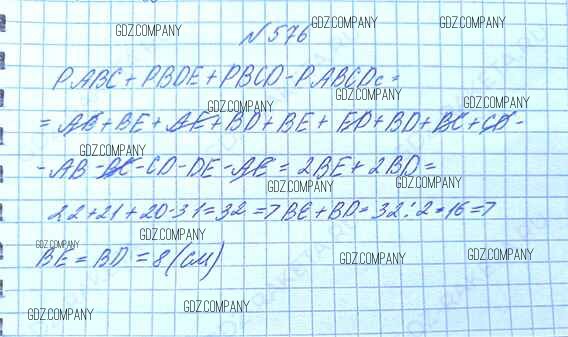 GDZ.COMPANY GDZ.COMPANY GDZ.COMPANY
№576
GDZ.COMPANY
P ABC + PBDE + PBCD - P.ABCDс =
GDZ.COMPANY GDZ.COMPANY
= AB + BE + AE + BD + BE + ED + BD + BC + CD -
GDZ.COMPANY
- AB - BC - CD - DE - AE = 2BE + 2BD =
GDZ.COMPANY GDZ.COMPANY
22 + 21 + 20 - 31 = 32 => BE + BD = 32 : 2 = 16 =>
GDZ.COMPANY
BE = BD = 8 (см)
GDZ.COMPANY GDZ.COMPANY
GDZ.COMPANY GDZ.COMPANY